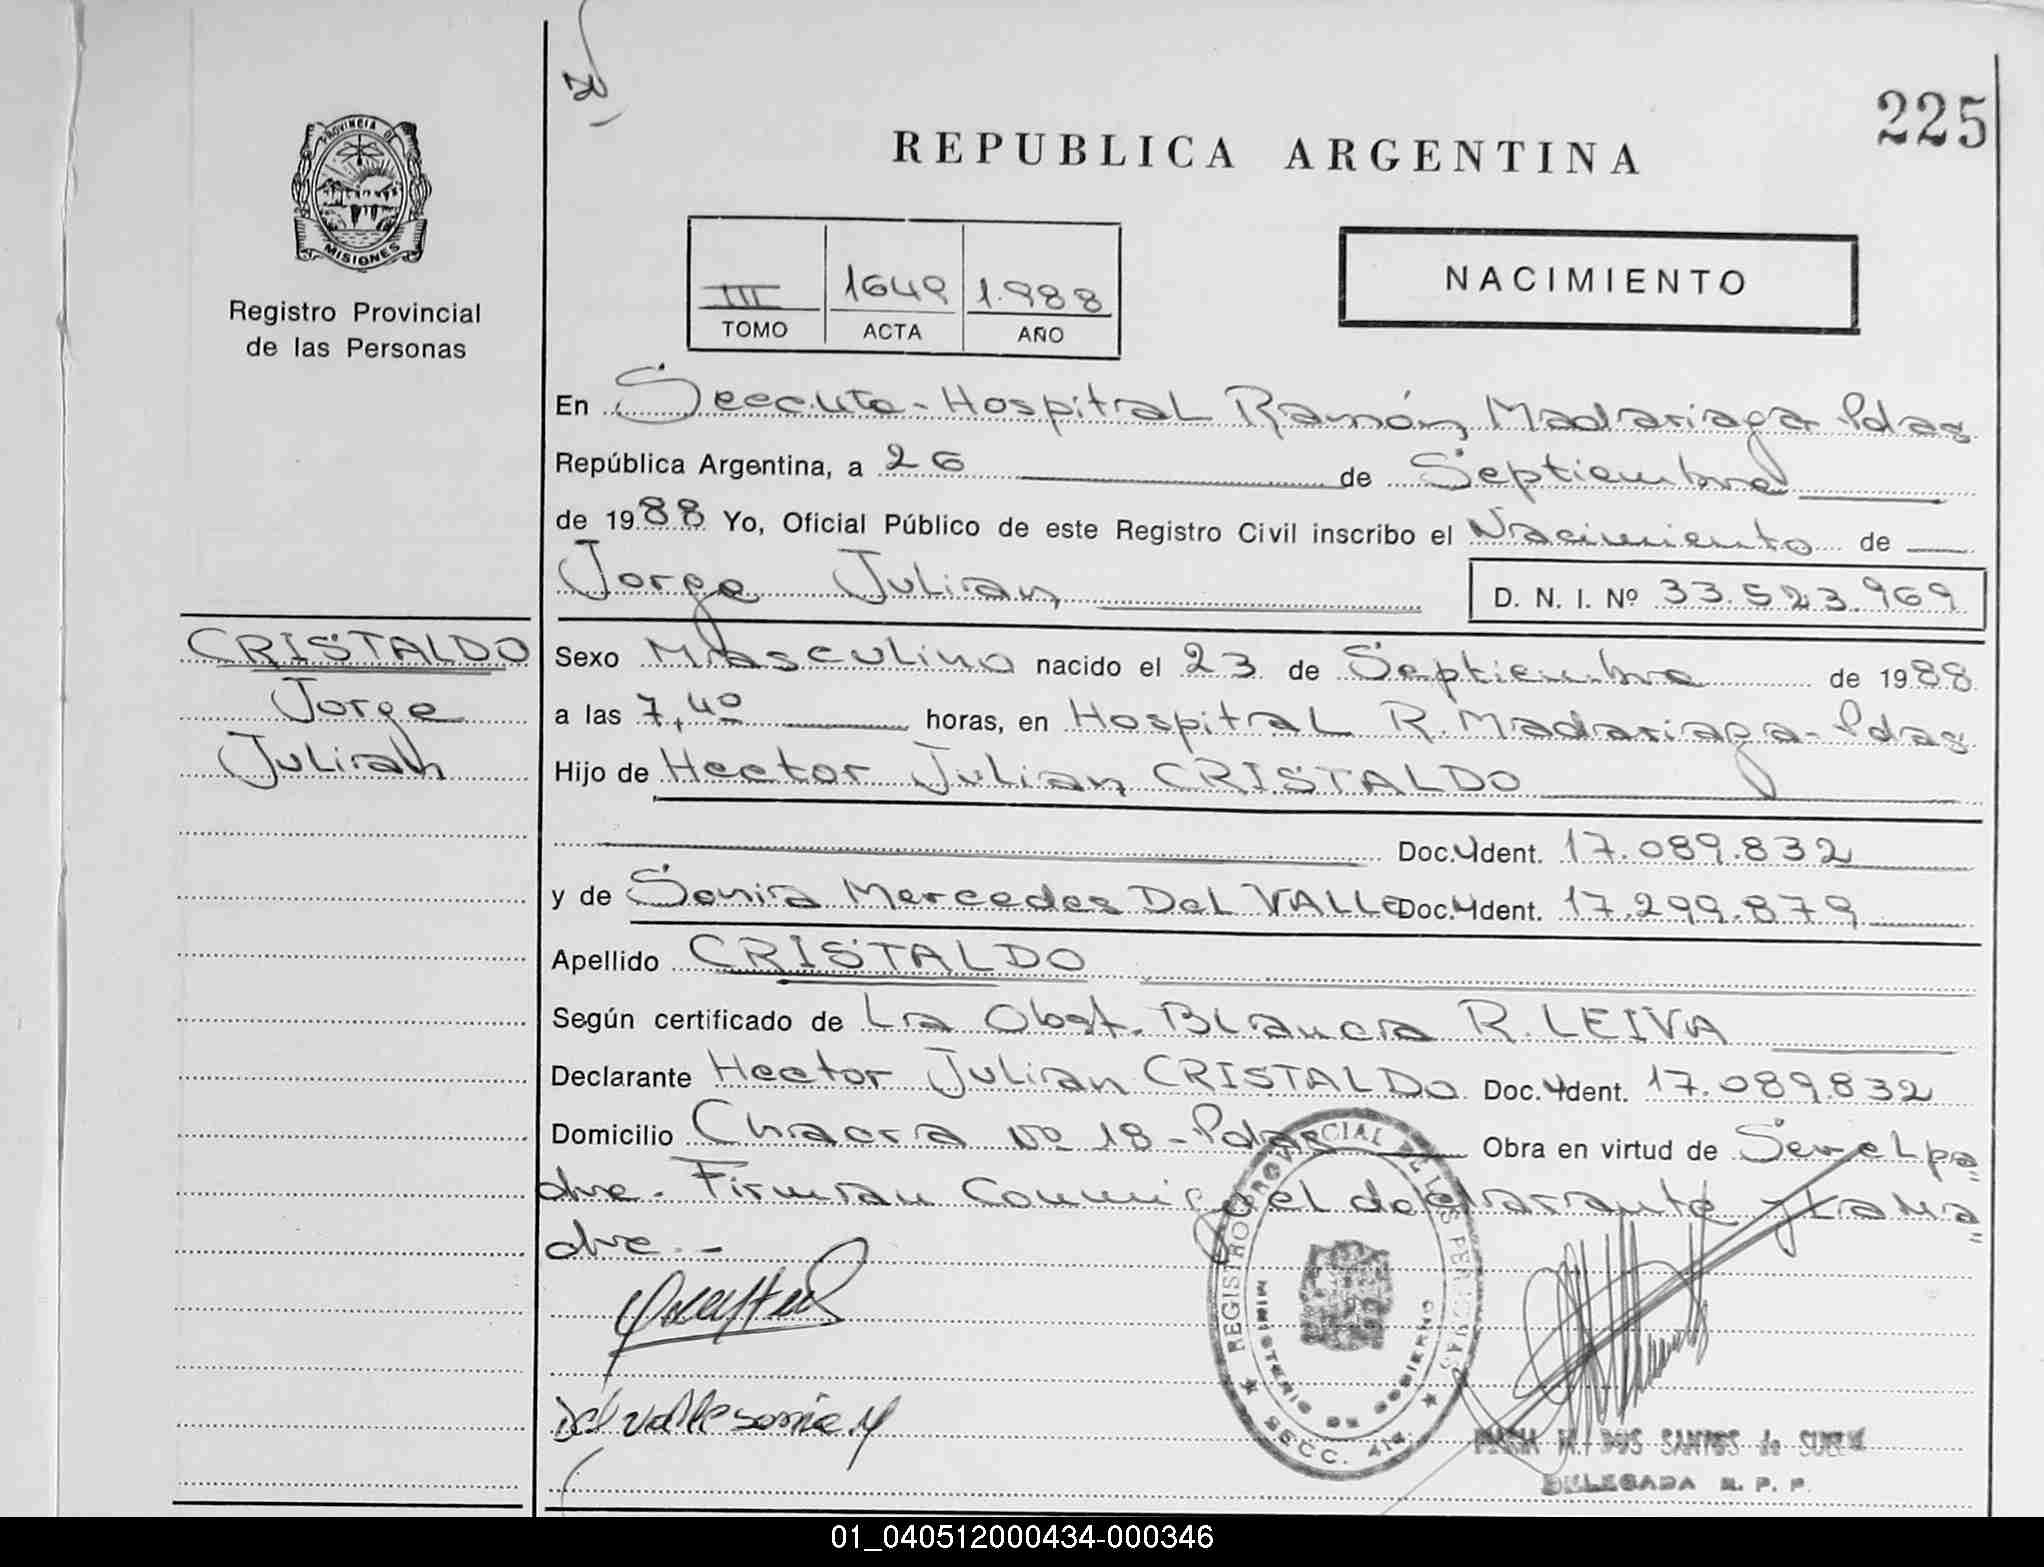 225
REPUBLICA ARGENTINA
PROVINCIA DE
MISIONES
Registro Provincial
de las Personas
III 1649 1.988
TOMO ACTA AÑO
NACIMIENTO
En Secc.uta - Hospital Ramón Madariaga Pdas
República Argentina, a 26 de Septiembre
de 1988 Yo, Oficial Público de este Registro Civil inscribo el Nacimiento de
Jorge Julian D. N. I. Nº 33.523.969
CRISTALDO
Jorge
Julian
Sexo Masculino nacido el 23 de Septiembre de 1988
a las 7,40 horas, en Hospital R. Madariaga - Pdas
Hijo de Hector Julian CRISTALDO
Doc. Ident. 17.089.832
y de Sonia Mercedes Del VALLE Doc. Ident. 17.299.879
Apellido CRISTALDO
Según certificado de La Obst. Blanca R. LEIVA
Declarante Hector Julian CRISTALDO Doc. Ident. 17.089.832
Domicilio Chacra Nº 18 - Pdas Obra en virtud de Ser el pa
dre. Firman Conmigo el declarante y la ma
dre.-
Del valle sonia M
REGISTRO PROVINCIAL DE LAS PERSONAS
MINISTERIO DE GOBIERNO
SECC. 414
M. DOS SANTOS de
DELEGADA R. P. P.
01_040512000434-000346